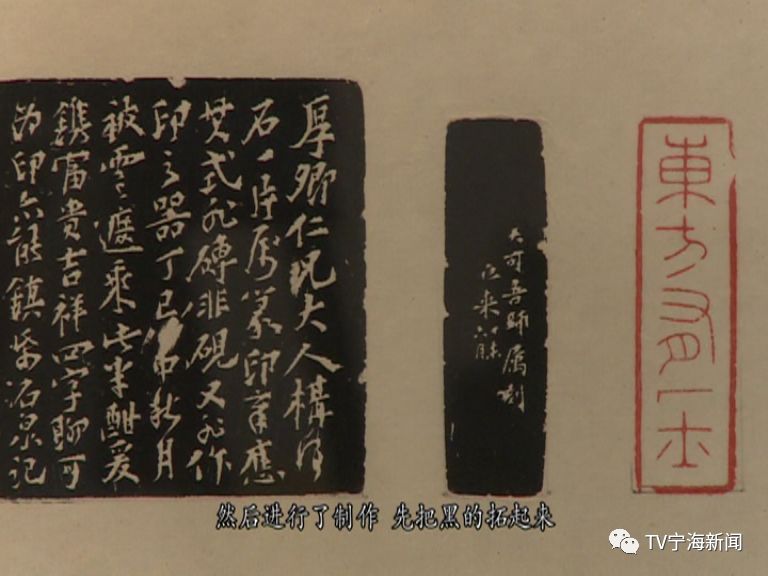 東方有一士
大可吾師屬刻
厚卿仁兄大人構得
石一屬篆印
其式如磚非硯又如作
印之器丁巳中秋月
被雲遮乘此半酣爰
鐫富貴吉祥四字聊可
為印亦能鎮紙石泉記
然后进行了制作 先把黑的拓起来
TV宁海新闻